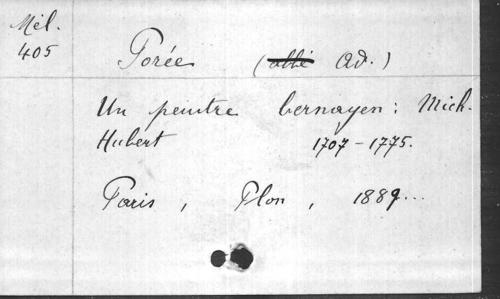 Mél.
405
Porée (abbé Ad.)
Un peintre bernayen : Mich.
Hubert 1707-1775.
Paris, Plon, 1889...